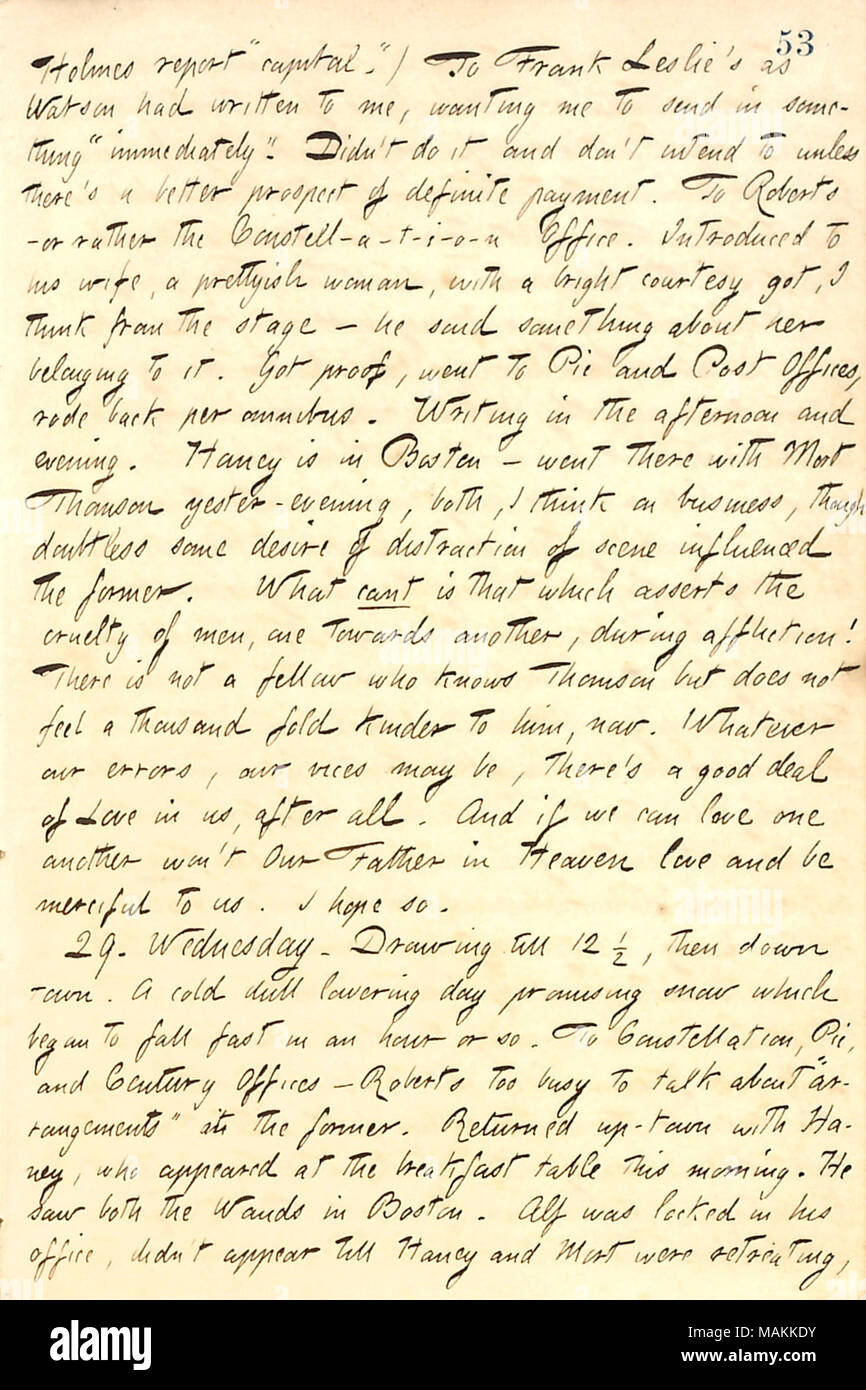 53
Holmes report "capital.") To Frank Leslie's as
Watson had written to me, wanting me to send in some-
thing "immediately". Didn't do it and don't intend to unless
there's a better prospect of definite payment. To Roberts
-or rather the Constell-a-t-i-o-n Office. Introduced to
his wife, a prettyish woman, with a bright courtesy got, I
think from the stage - he said something about her
belonging to it. Got proof, went to Pic and Post Offices,
rode back per omnibus. Writing in the afternoon and
evening. Haney is in Boston - went there with Mort
Thomson yester-evening, both, I think on business, though
doubtless some desire of distraction of scene influenced
the former. What cant is that which asserts the
cruelty of men, one towards another, during affliction!
There is not a fellow who knows Thomson but does not
feel a thousand fold kinder to him, now. Whatever
our errors, our vices may be, there's a good deal
of Love in us, after all. And if we can love one
another won't Our Father in Heaven love and be
merciful to us. I hope so.
29. Wednesday. Drawing till 12 ½, then down
town. A cold dull lowering day promising snow which
began to fall fast in an hour or so. To Constellation, Pic,
and Century Offices - Roberts too busy to talk about "ar-
rangements" at the former. Returned up-town with Ha-
ney, who appeared at the breakfast table this morning. He
saw both the Wauds in Boston. Alf was locked in his
office, didn't appear till Haney and Mort were retreating,
alamy
Image ID: MAKKDY
www.alamy.com